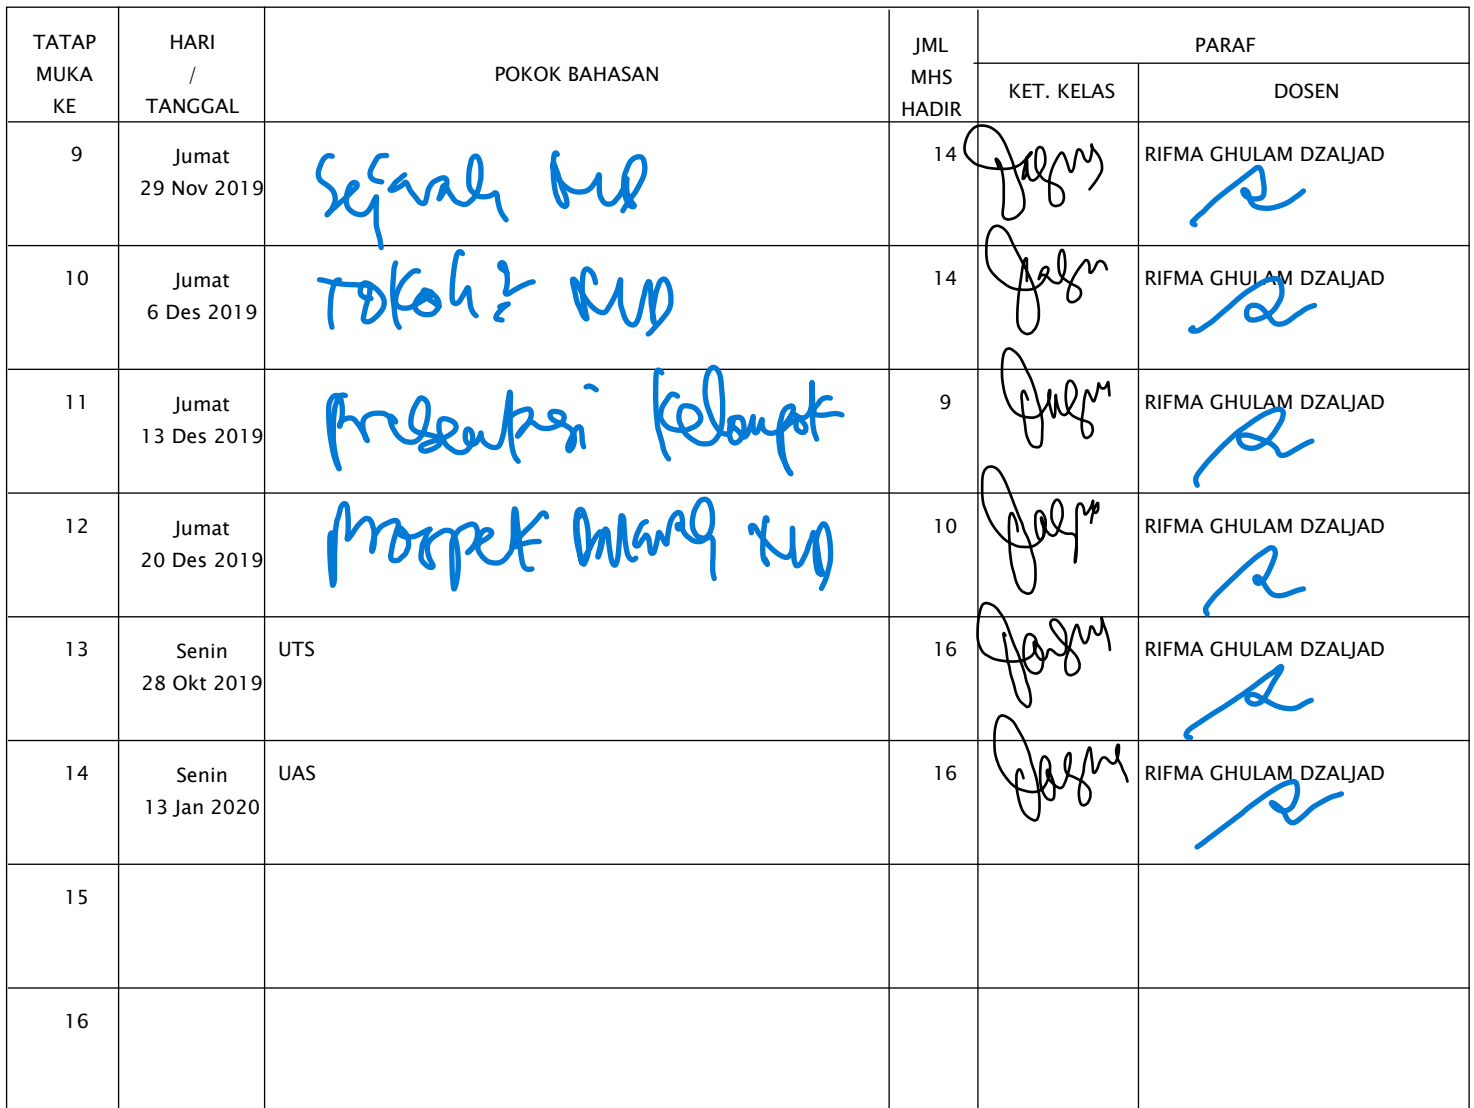 TATAP MUKA KE HARI / TANGGAL POKOK BAHASAN JML MHS HADIR PARAF
KET. KELAS DOSEN
9 Jumat 29 Nov 2019 Sejarah KUD 14 RIFMA GHULAM DZALJAD
10 Jumat 6 Des 2019 Tokoh2 KUD 14 RIFMA GHULAM DZALJAD
11 Jumat 13 Des 2019 Presentasi Kelompok 9 RIFMA GHULAM DZALJAD
12 Jumat 20 Des 2019 Prospek KUD 10 RIFMA GHULAM DZALJAD
13 Senin 28 Okt 2019 UTS 16 RIFMA GHULAM DZALJAD
14 Senin 13 Jan 2020 UAS 16 RIFMA GHULAM DZALJAD
15
16